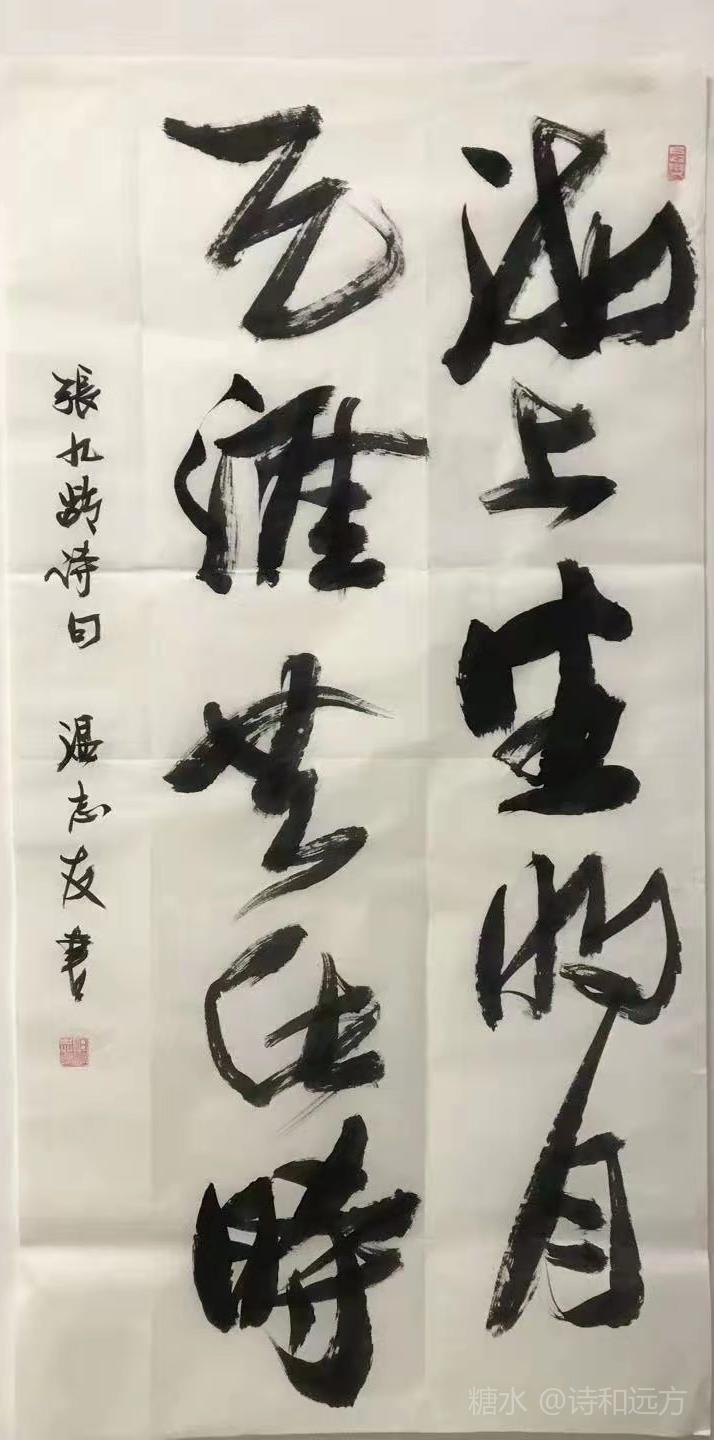 海上生明月
天涯共此時
張九齡詩句 温志友書
糖水 @诗和远方